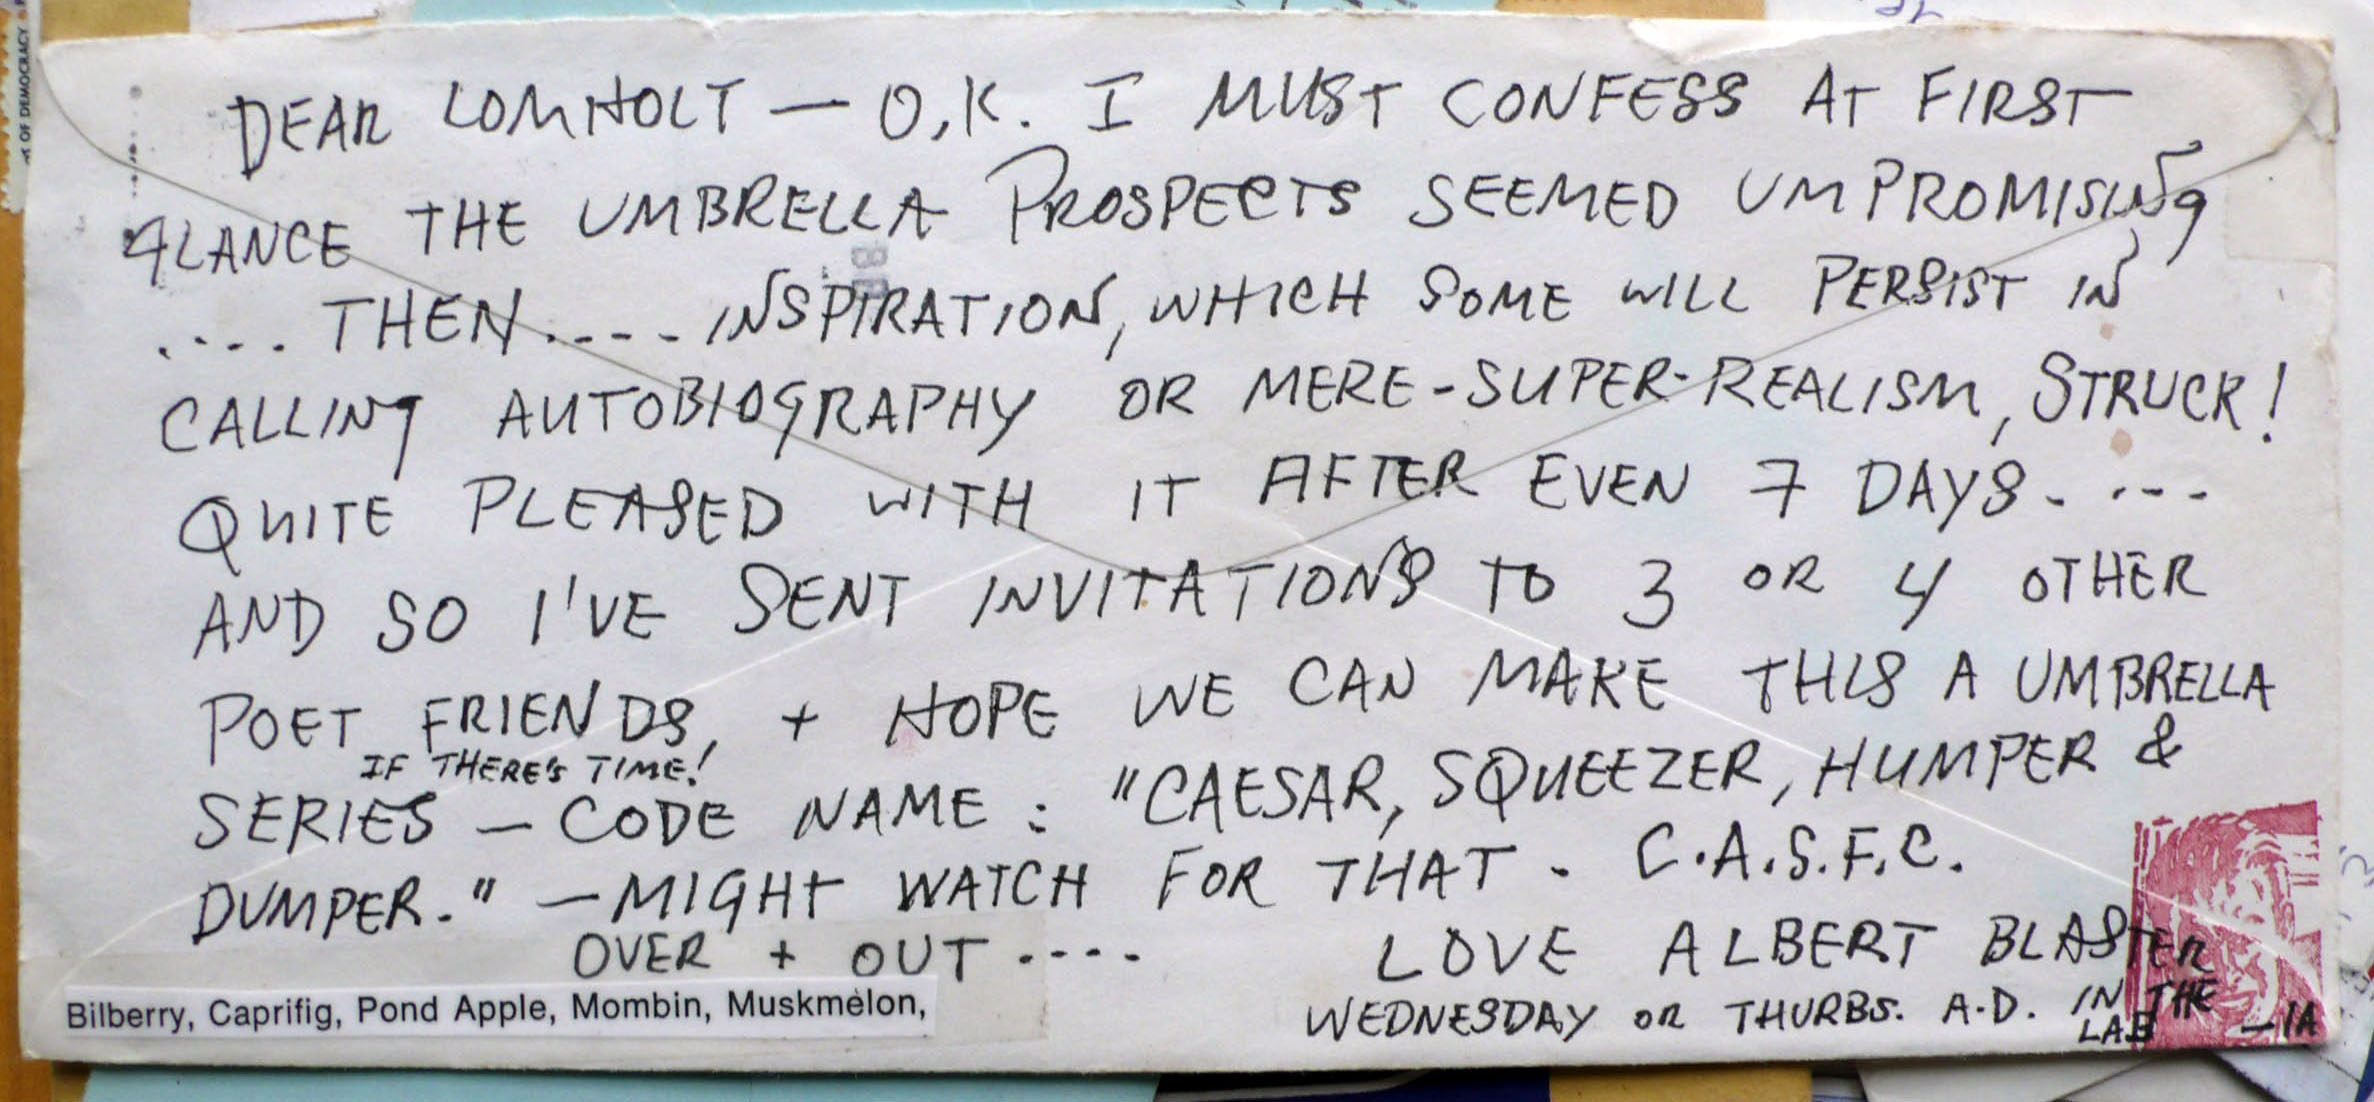 DEAR LOMHOLT — O.K. I MUST CONFESS AT FIRST
GLANCE THE UMBRELLA PROSPECTS SEEMED UMPROMISING
.... THEN .... INSPIRATION, WHICH SOME WILL PERSIST IN
CALLING AUTOBIOGRAPHY OR MERE-SUPER-REALISM, STRUCK!
QUITE PLEASED WITH IT AFTER EVEN 7 DAYS. ...
AND SO I'VE SENT INVITATIONS TO 3 OR 4 OTHER
POET FRIENDS, + HOPE WE CAN MAKE THIS A UMBRELLA
IF THERE'S TIME!
SERIES — CODE NAME : "CAESAR, SQUEEZER, HUMPER &
DUMPER." — MIGHT WATCH FOR THAT. C.A.S.F.C.
OVER + OUT .... LOVE ALBERT BLASTER
WEDNESDAY OR THURBS. A.D. IN THE
LAB —IA
Bilberry, Caprifig, Pond Apple, Mombin, Muskmelon,
OF DEMOCRACY